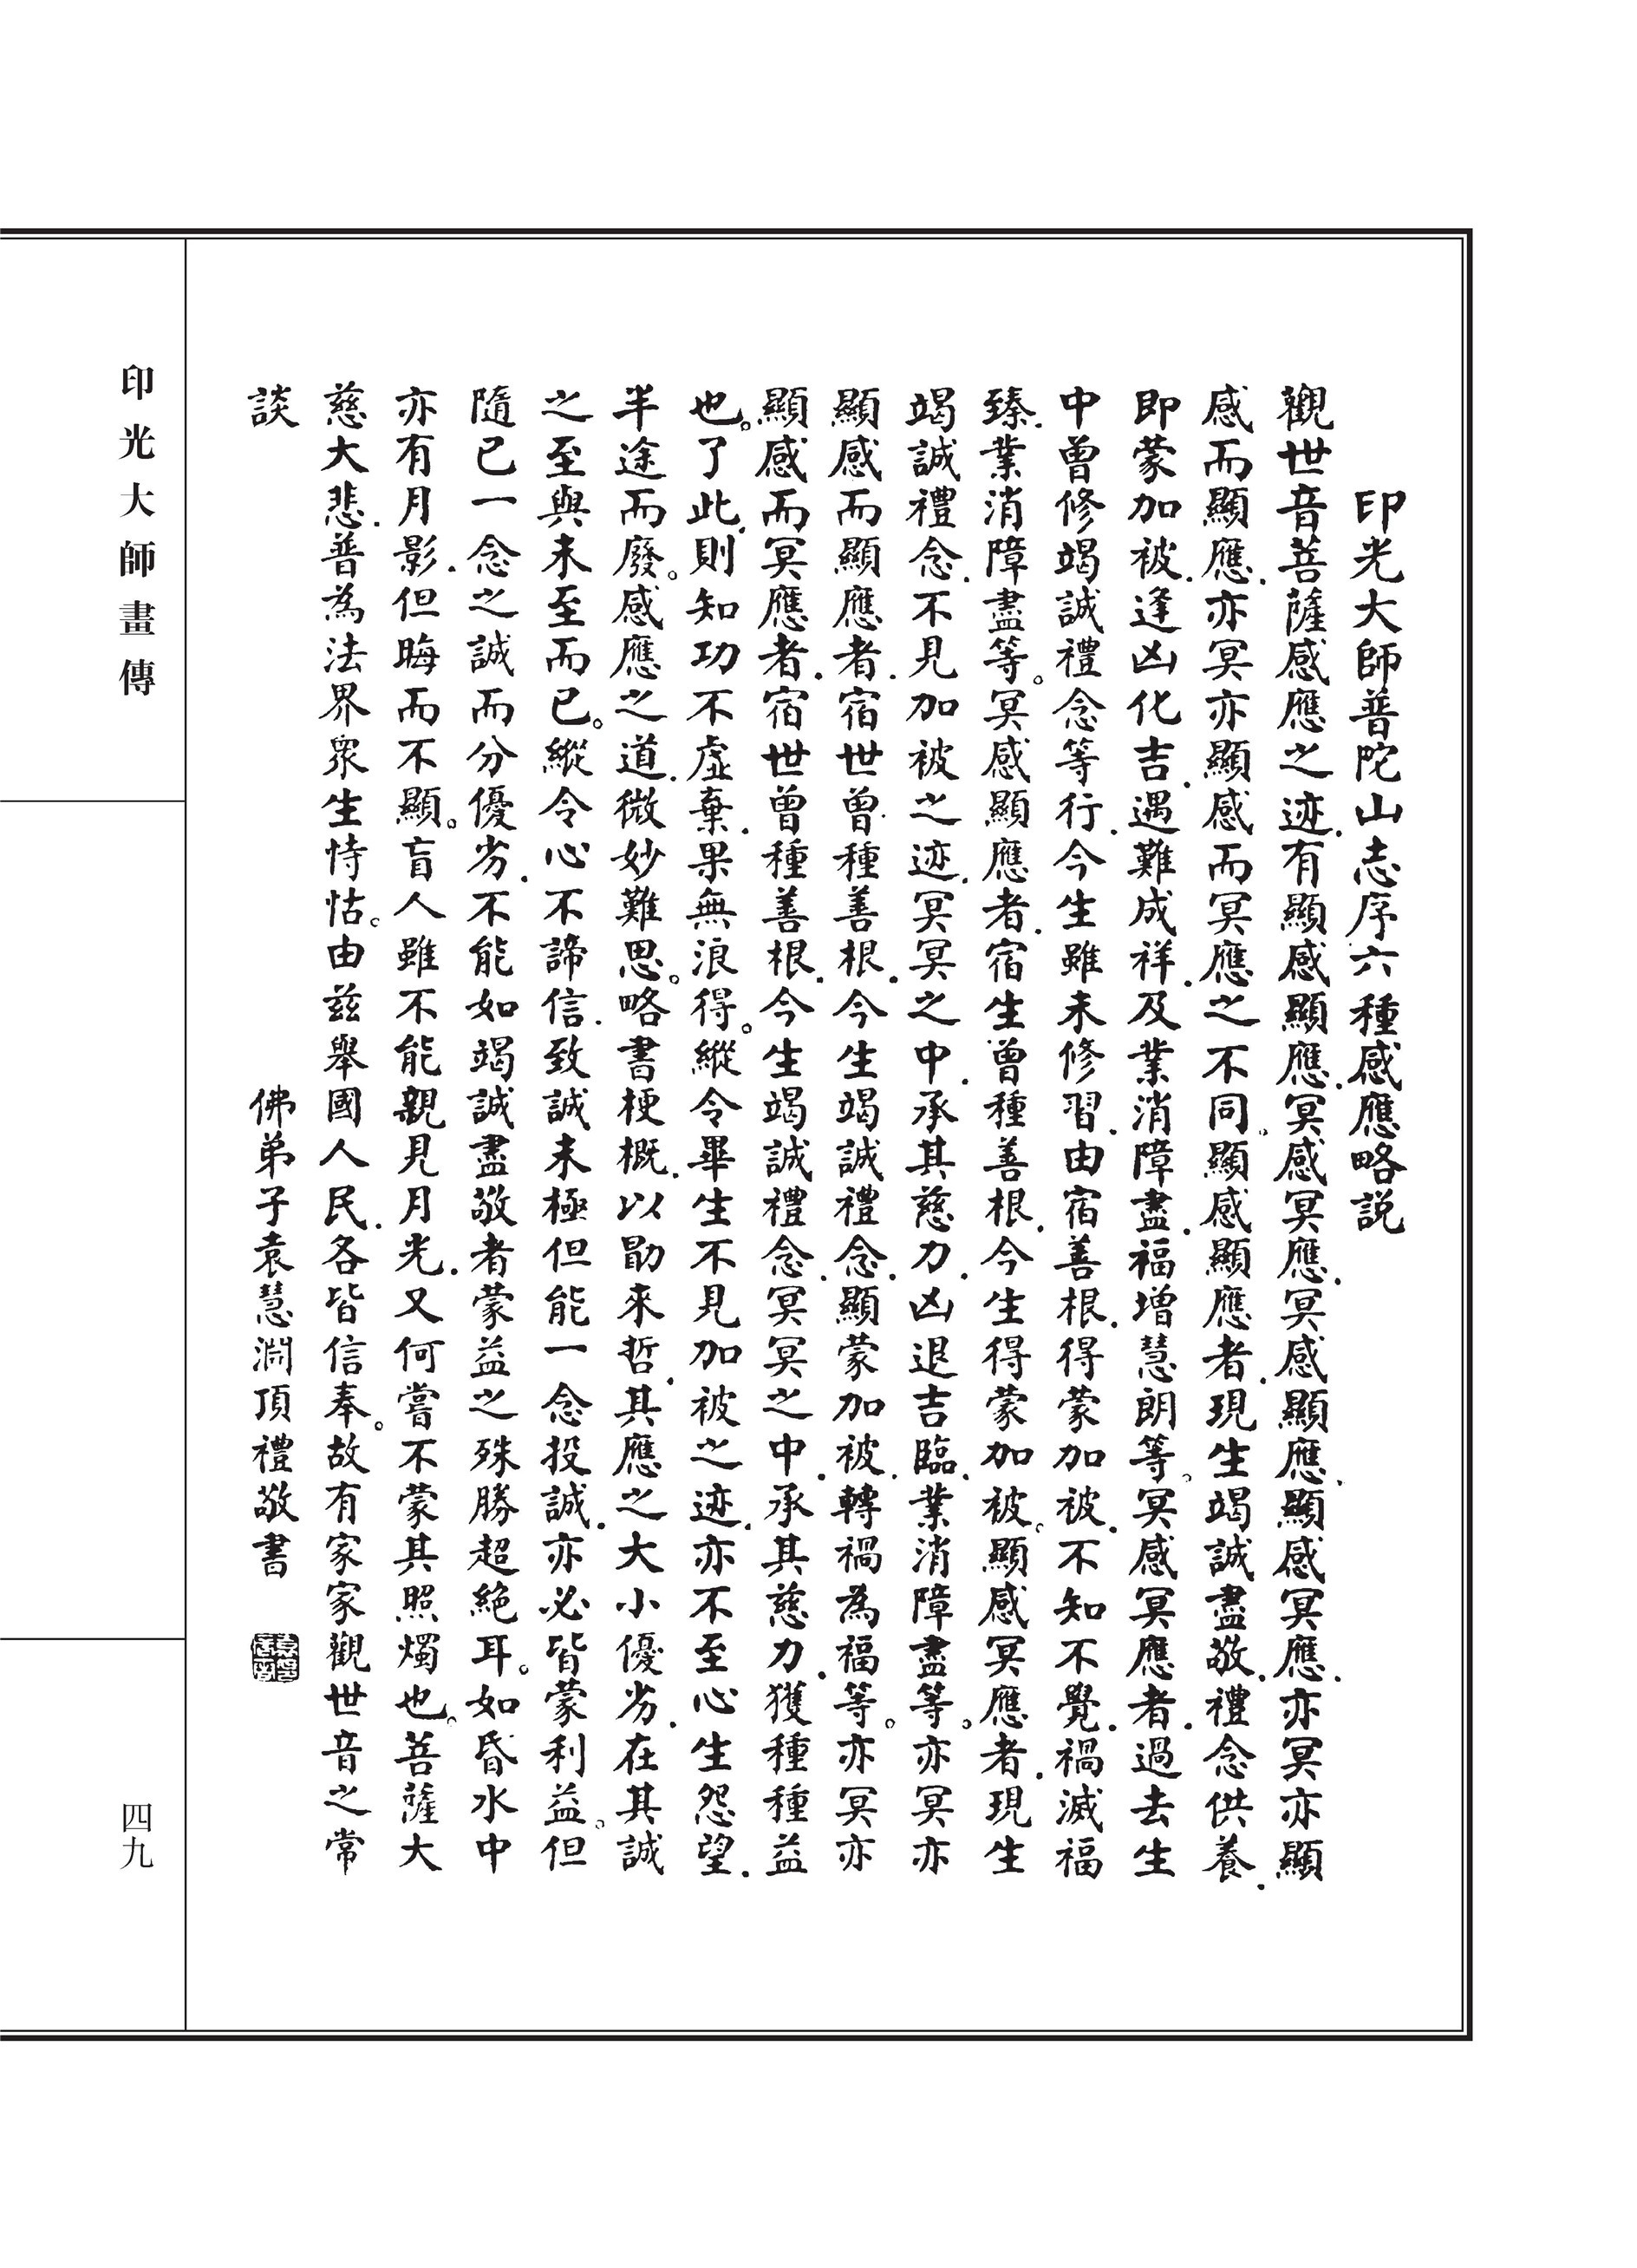 印光大師普陀山志序六種感應略説
觀世音菩薩感應之迹.有顯感顯應.冥感冥應.冥感顯應.顯感冥應.亦冥亦顯
感而顯應.亦冥亦顯感而冥應之不同。顯感顯應者.現生竭誠盡敬.禮念供養.
即蒙加被.逢凶化吉.遇難成祥.及業消障盡.福增慧朗等。冥感冥應者.過去生
中曾修竭誠禮念等行.今生雖未修習.由宿善根.得蒙加被.不知不覺.禍滅福
臻.業消障盡等。冥感顯應者.宿生曾種善根.今生得蒙加被。顯感冥應者.現生
竭誠禮念.不見加被之迹.冥冥之中.承其慈力.凶退吉臨.業消障盡等。亦冥亦
顯感而顯應者.宿世曾種善根.今生竭誠禮念.顯蒙加被.轉禍為福等。亦冥亦
顯感而冥應者.宿世曾種善根.今生竭誠禮念.冥冥之中.承其慈力.獲種種益
也。了此.則知功不虛棄.果無浪得。縱令畢生不見加被之迹.亦不至心生怨望.
半途而廢。感應之道.微妙難思。略書梗概.以勖來哲.其應之大小優劣.在其誠
之至與未至而已。縱令心不諦信.致誠未極但能一念投誠.亦必皆蒙利益。但
隨已一念之誠而分優劣.不能如竭誠盡敬者蒙益之殊勝超絶耳。如昏水中
亦有月影.但晦而不顯。盲人雖不能親見月光.又何嘗不蒙其照燭也。菩薩大
慈大悲.普為法界衆生恃怙。由兹舉國人民.各皆信奉。故有家家觀世音之常
談
佛弟子袁慧淵頂禮敬書
印光大師畫傳
四九